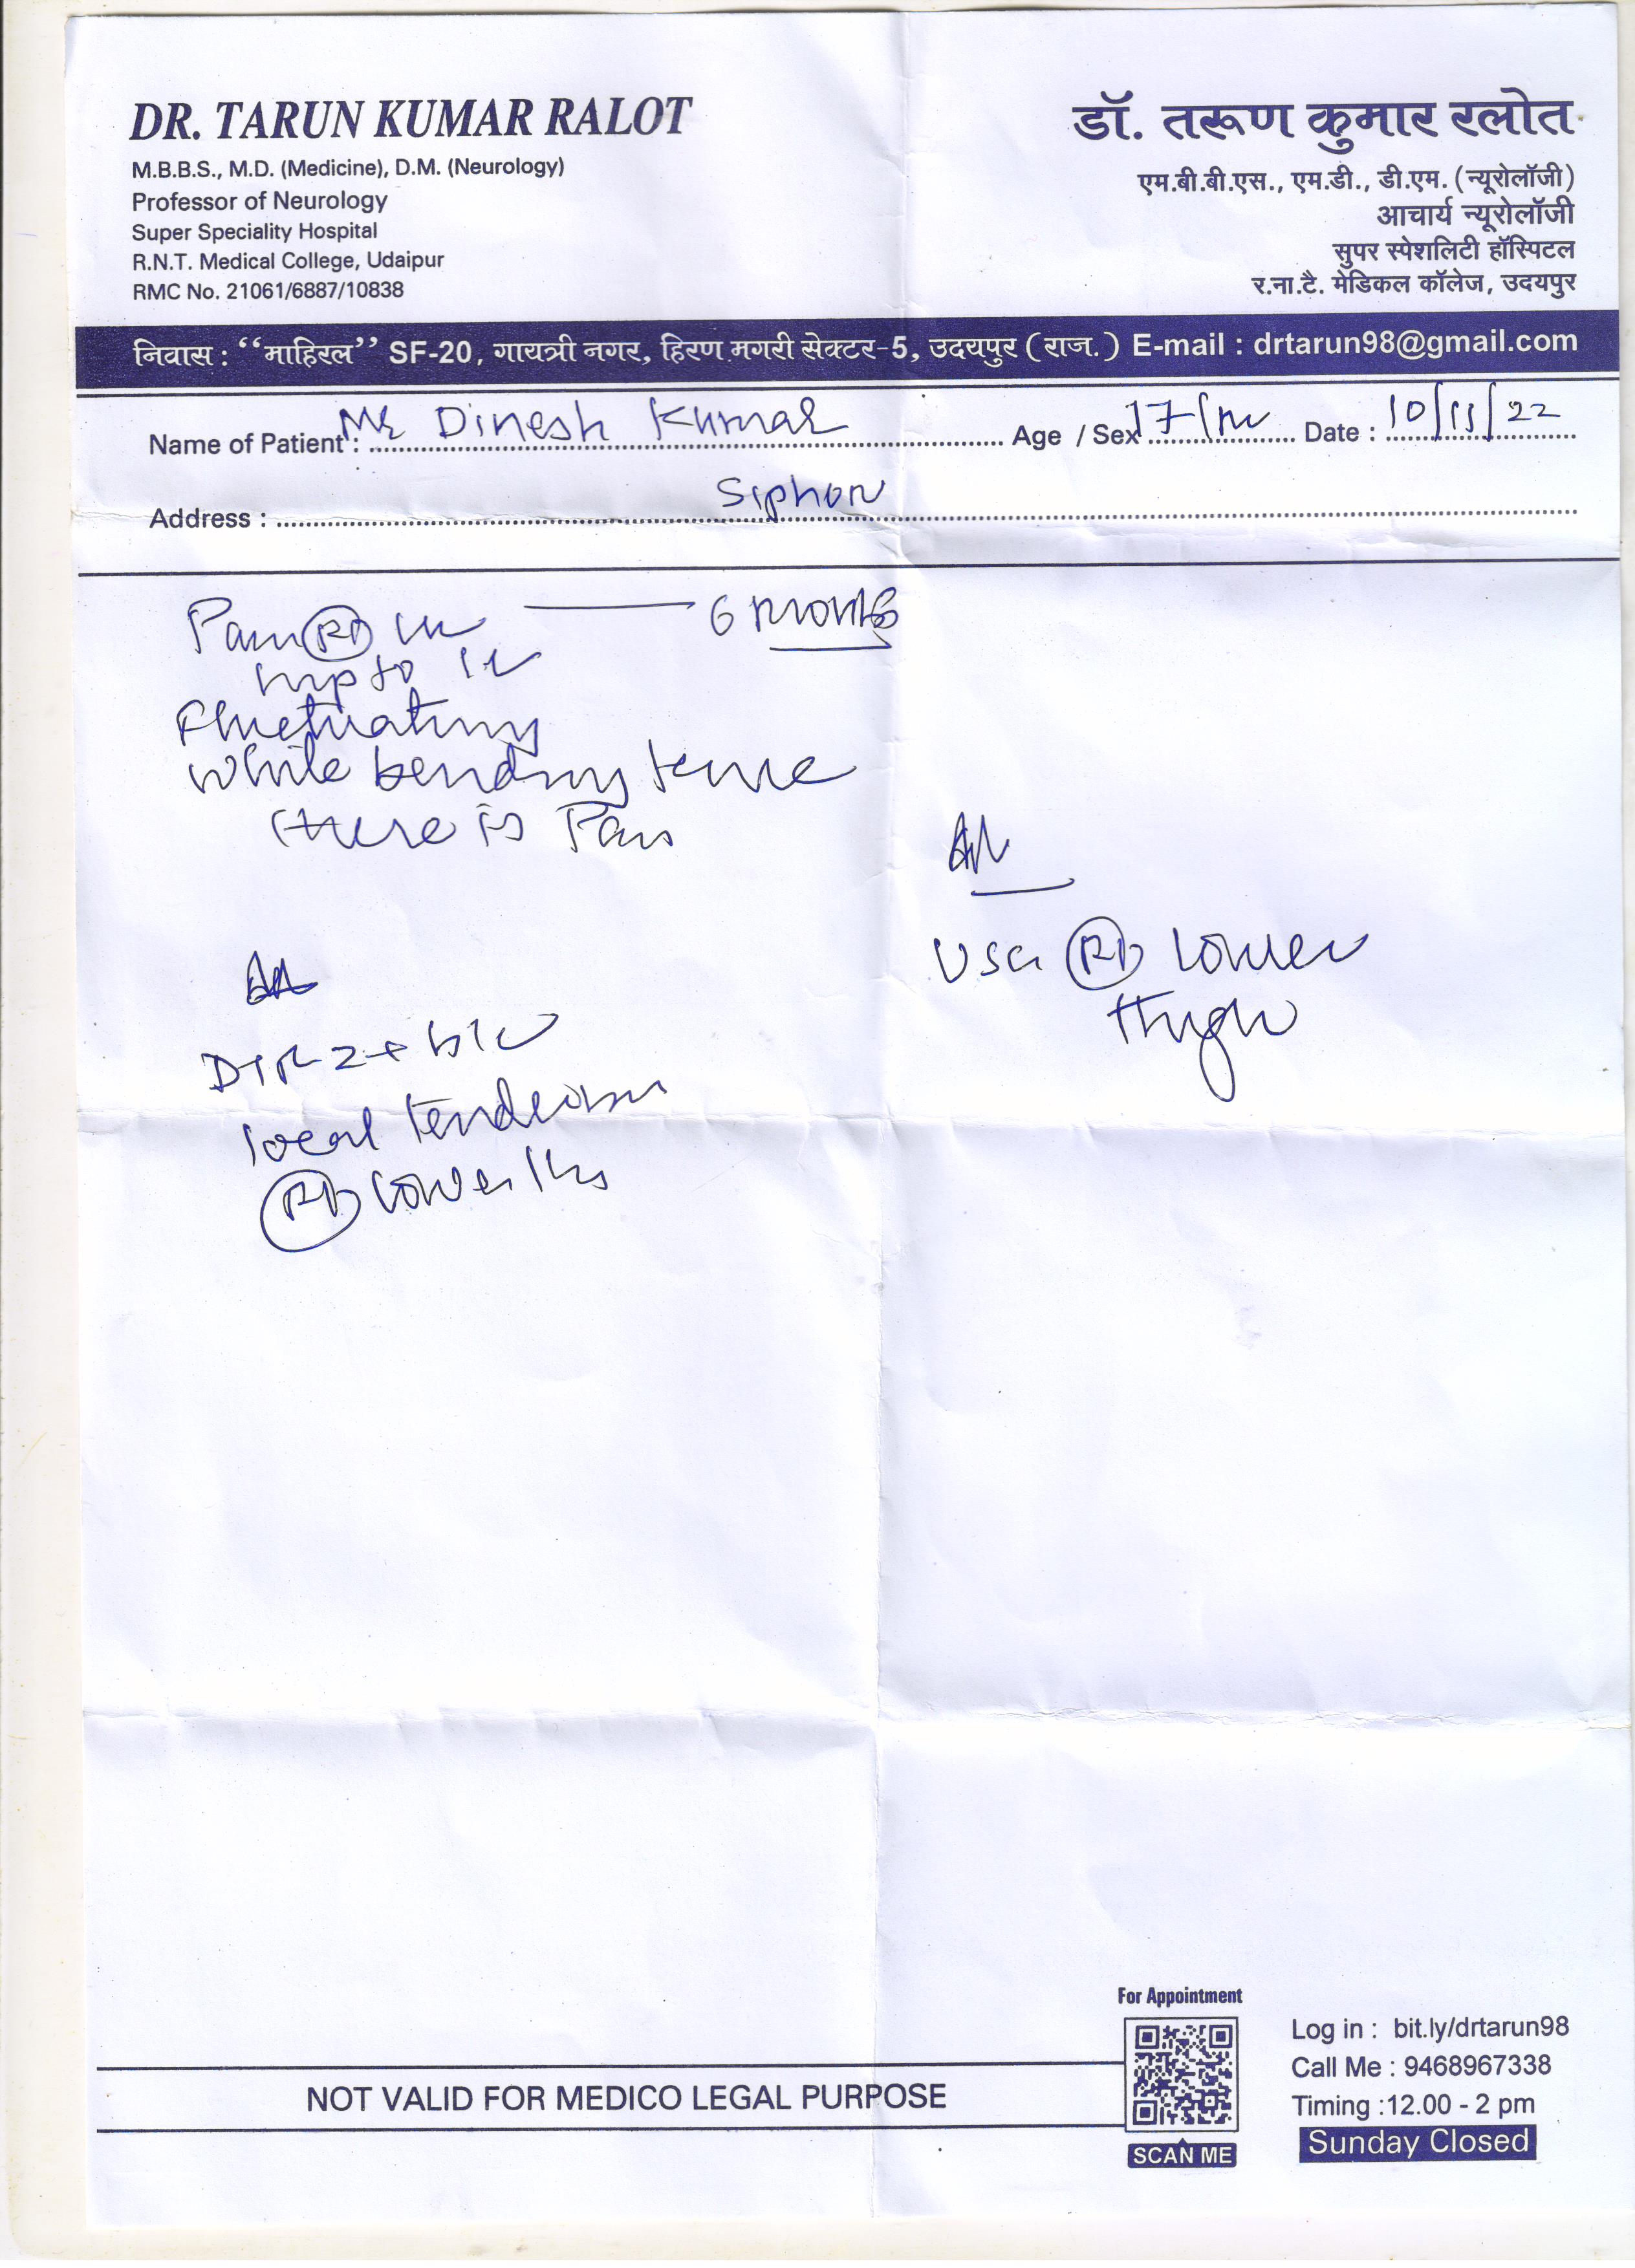 DR. TARUN KUMAR RALOT
M.B.B.S., M.D. (Medicine), D.M. (Neurology)
Professor of Neurology
Super Speciality Hospital
R.N.T. Medical College, Udaipur
RMC No. 21061/6887/10838
डॉ. तरूण कुमार रलोत
एम.बी.बी.एस., एम.डी., डी.एम. (न्यूरोलॉजी)
आचार्य न्यूरोलॉजी
सुपर स्पेशलिटी हॉस्पिटल
र.ना.टै. मेडिकल कॉलेज, उदयपुर
निवास : “माहिरल” SF-20, गायत्री नगर, हिरण मगरी सेक्टर-5, उदयपुर (राज.) E-mail : drtarun98@gmail.com
Name of Patient : Mr Dinesh Kumar Age / Sex 17/m Date : 10/11/22
Address : Siphon
Pain Rt 6 months
hip to
Fluctuating
while bending
there is Pain
DTR 2+ b/l
local tenderness
Rt lower
USG Rt lower
thigh
For Appointment
SCAN ME
Log in : bit.ly/drtarun98
Call Me : 9468967338
Timing :12.00 - 2 pm
Sunday Closed
NOT VALID FOR MEDICO LEGAL PURPOSE